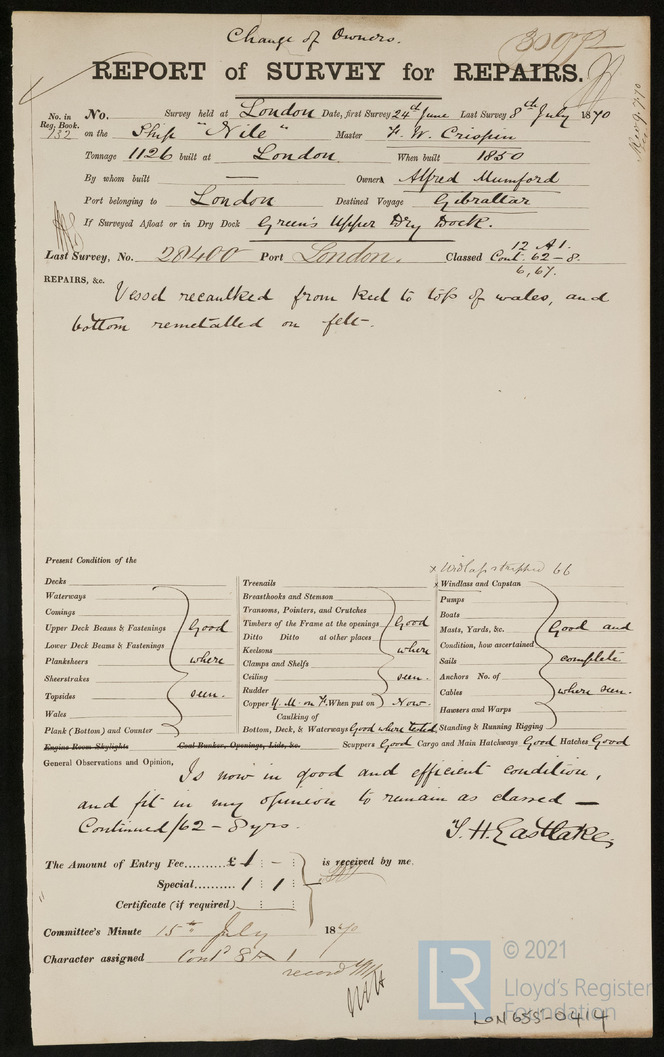 Change of Owners.
REPORT of SURVEY for REPAIRS.
No. in Reg. Book. 132
No. Survey held at London Date, first Survey 24th June Last Survey 8th July 1870
on the Ship "Nile" Master F. W. Crispin
Tonnage 1126 built at London When built 1850
By whom built — Owner Alfred Mumford
Port belonging to London Destined Voyage Gibraltar
If Surveyed Afloat or in Dry Dock Green's Upper Dry Dock.
Last Survey, No. 28400 Port London. Classed 12 A1. Cont. 62-8. 6,67.
REPAIRS, &c.
Vessel recaulked from keel to top of wales, and
bottom remetalled on felt.
Present Condition of the
Decks
Waterways
Comings
Upper Deck Beams & Fastenings
Lower Deck Beams & Fastenings
Planksheers
Sheerstrakes
Topsides
Wales
Plank (Bottom) and Counter
Good
where
seen.
Treenails
Breasthooks and Stemson
Transoms, Pointers, and Crutches
Timbers of the Frame at the openings
Ditto Ditto at other places
Keelsons
Clamps and Shelfs
Ceiling
Rudder
Good
where
seen.
Copper Y. M. on F. When put on Now.
Caulking of
Bottom, Deck, & Waterways Good where tested
66
x Windlass and Capstan
Pumps
Boats
Masts, Yards, &c.
Condition, how ascertained
Sails
Anchors No. of
Cables
Hawsers and Warps
Standing & Running Rigging
Good and
complete
where seen.
Engine Room Skylights Coal Bunker, Openings, Lids, &c. Scuppers Good Cargo and Main Hatchways Good Hatches Good
General Observations and Opinion,
Is now in good and efficient condition,
and fit in my opinion to remain as classed —
Continued/62 - 8 yrs.
T. H. Eastlake,
The Amount of Entry Fee.......... £ 1 : - : is received by me.
Special.......... 1 : 1 :
Certificate (if required) : :
Committee's Minute 15th July 1870
Character assigned Contd 8 A 1
record
LR
© 2021
Lloyd's Register
Foundation
LON655-0414